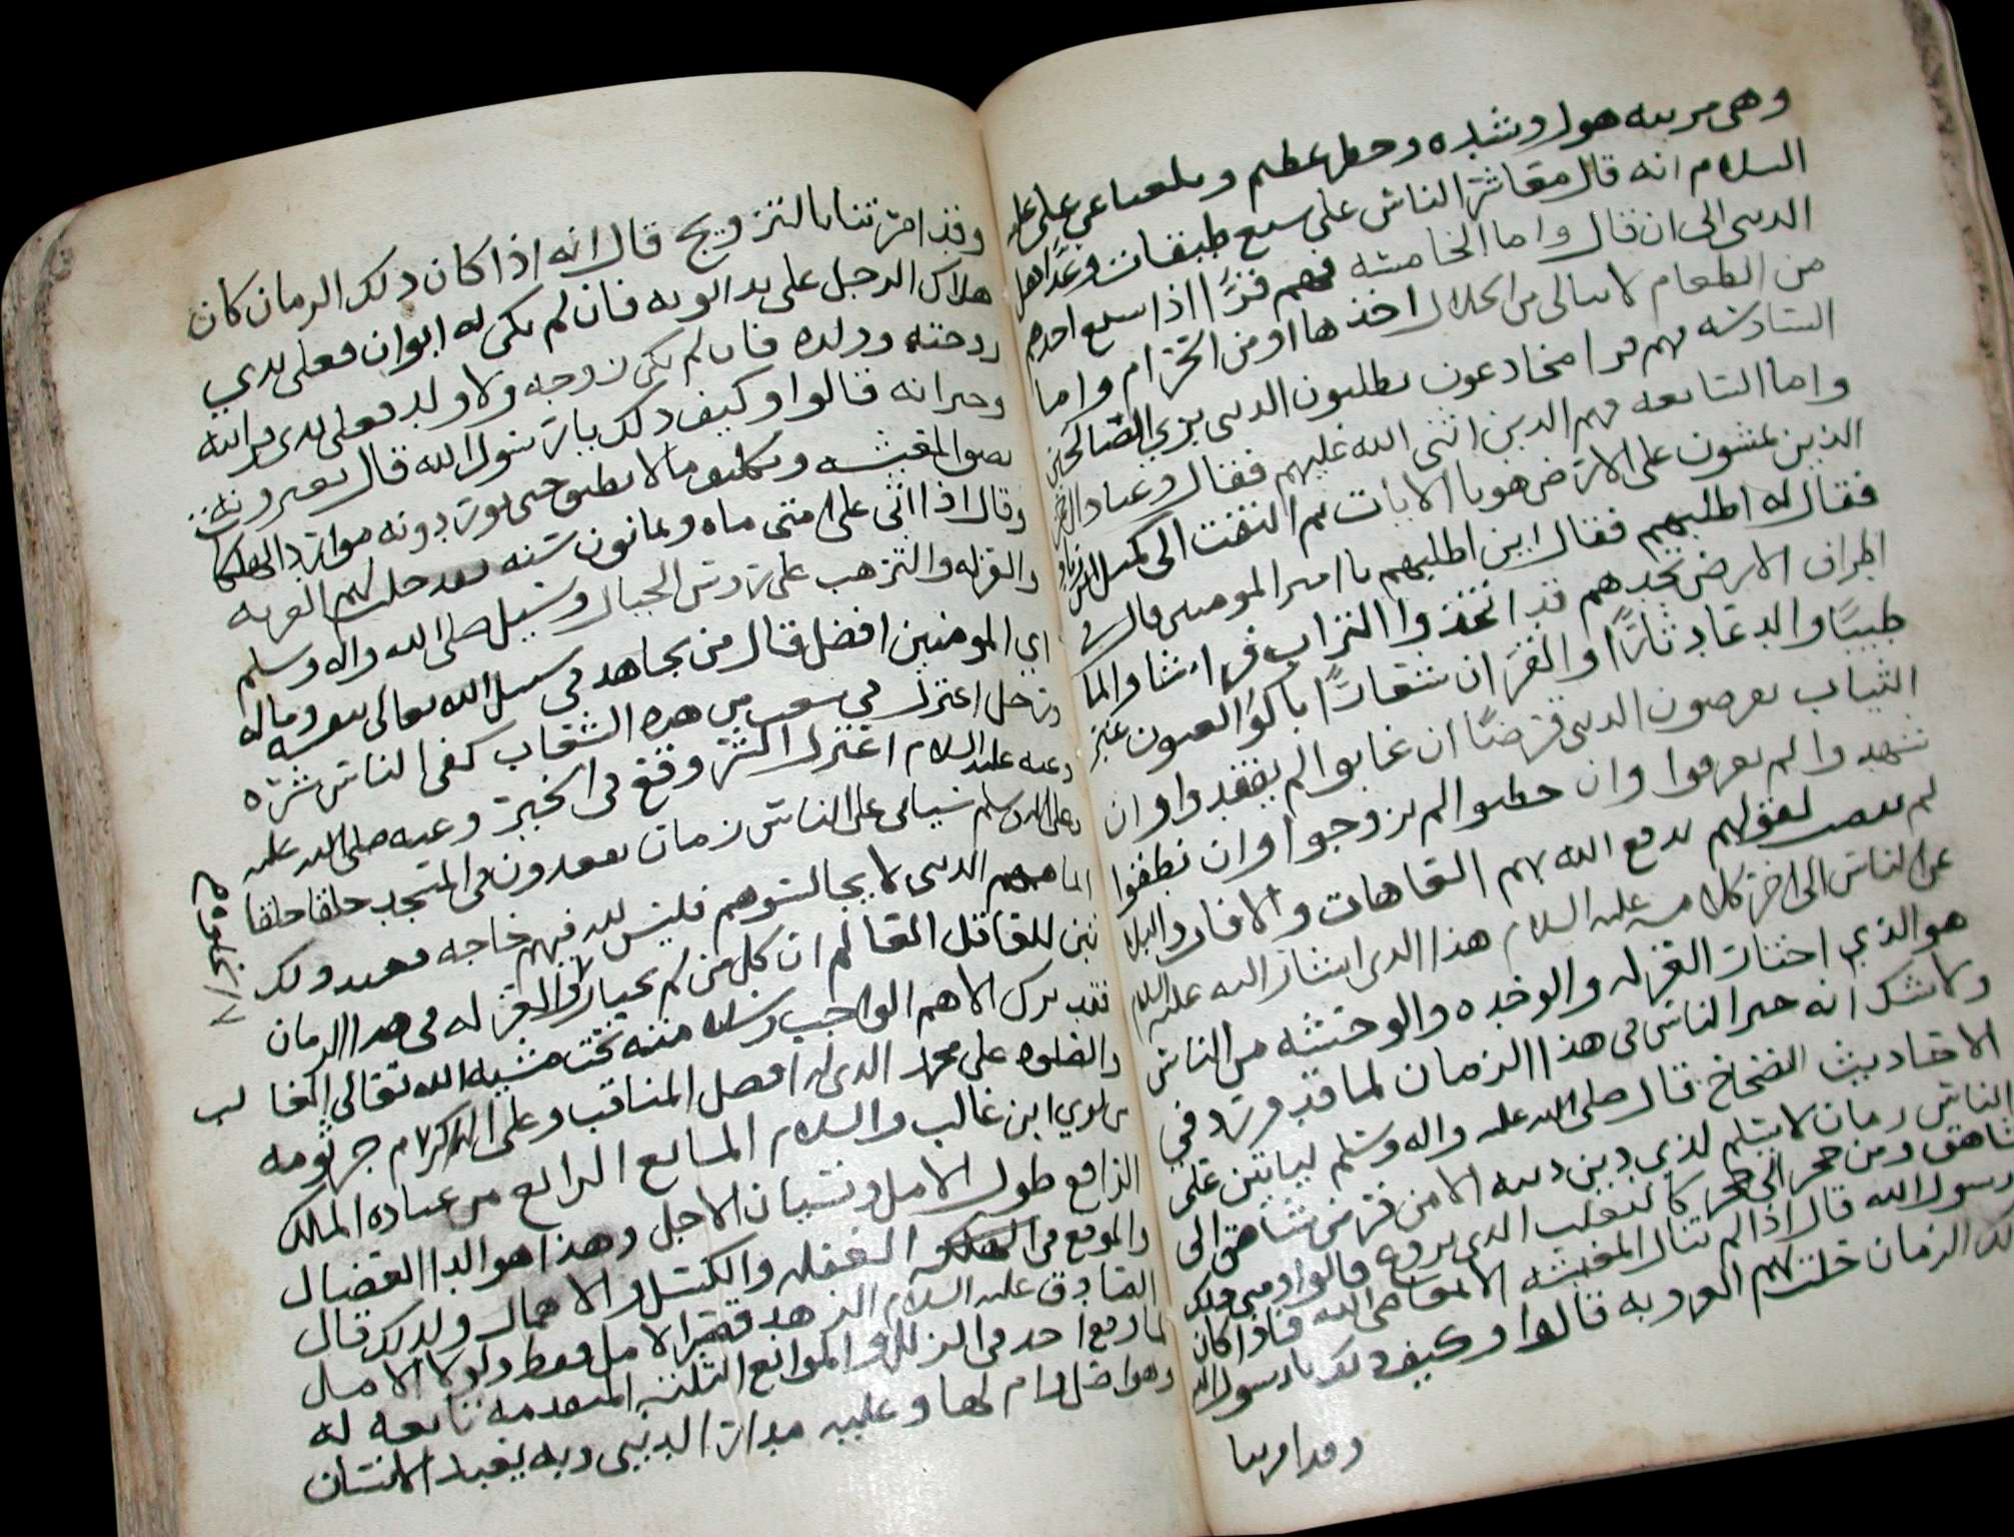 وهي مرتبه هول وشده وخطر عظيم وبلغنا عن علي عليه
السلام انه قال معاشر الناس على سبع طبقات وعد اهل
الدين الى ان قال واما الخامسه فهم قرا اذا اشبع احدهم
من الطعام لا يبالي من الحلال اخذها او من الحرام واما
السادسه فهم قرا مخادعون يطلبون الدنيا بزي الصالحين
واما السابعه فهم الذين اثنى الله عليهم فقال وعباد الرحمن
الذين يمشون على الارض هونا الايات ثم التفت الى كميل بن زياد
فقال له اطلبهم فقال اين اطلبهم يا امير المومنين قال في
اطراف الارض تجدهم قد اتخذوا التراب فراشا والما
طيبا والدعا دثارا والقران شعارا باكوا العيون غبر
الثياب يقرضون الدنيا قرضا ان غابوا لم يفقدوا وان
شهدوا لم يعرفوا وان خطبوا لم يزوجوا وان نطقوا
لم ينصت لقولهم يدفع الله بهم العاهات والافات والبلا
عن الناس الى اخر كلامه عليه السلام هذا الذي اشار اليه عليه السلام
هو الذي اختار العزله والوحده والوحشه من الناس
ولا شك انه خير الناس في هذا الزمان لما قد ورد في
الاحاديث الصحاح قال صلى الله عليه واله وسلم لياتين على
الناس زمان لا يسلم لذي دين دينه الا من فر من شاهق الى
شاهق ومن حجر الى حجر كالثعلب الذي يروغ قالوا ومتى ذلك
يا رسول الله قال اذا لم تنال المعيشه الا بمعاصي الله فاذا كان
ذلك الزمان حلت لهم العزوبه قالوا وكيف ذلك يا رسول الله
وقد امرتنا
وقد امرتنا بالتزويج قال انه اذا كان ذلك الزمان كان
هلاك الرجل على يد ابويه فان لم يكن له ابوان فعلى يدي
زوجته وولده فان لم يكن زوجه ولا ولد فعلى يدي قرابته
وجيرانه قالوا وكيف ذلك يا رسول الله قال يعيرونه
بضيق المعيشه ويكلفوه ما لا يطيق حتى يورد دونه موارد الهلكا
وقال اذا اتى على امتي مايه وثمانون سنه فقد حلت لهم العزبه
والعزله والترهب على روس الجبال وسيل صلى الله واله وسلم
اي المومنين افضل قال من يجاهد في سبيل الله تعالى بنفسه وماله
ورجل اعتزل في شعب من هذه الشعاب كفى الناس شره
وعنه عليه السلام اعتزل الشر وقع في الخير وعنه صلى الله عليه
وعلى اله وسلم سياتي على الناس زمان يقعدون في المسجد حلقا حلقا
الدنيا لا يجالسوهم فليس لله فيهم حاجه فعند ذلك
تبين للعاقل العالم ان كل من لم يختار العزله في هذا الزمان
فقد ترك الاهم الواجب منه تحت مشيه الله تعالى
والصلوه على محمد الذي له افضل المناقب وعلى اله الكرام جرثومه
لوي ابن غالب والسلام المانع الرابع من عباده المالك
الرافع طول الامل ونسيان الاجل وهذا هو الدا العضال
والموقع في الهلكه الغفله والكسل والاهمال ولذلك قال
الصادق عليه السلام الزهد قصر الامل فقط ولولا الامال
لما وقع احد في الزلل والموانع الثلثه المتقدمه تابعه له
وهو اصل وام لها وعليه مدار الدنيا وبه يعبد الانسان